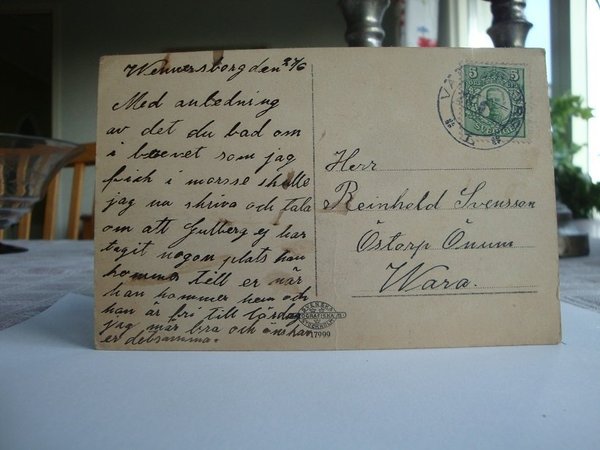 Wennersborg den 27/6
Med anledning
av det du bad om
i brevet som jag
fick i morse skulle
jag nu skriva och tala
om att Gulberg ej har
tagit någon plats han
kommer till er när
han kommer hem och
han är fri till lördag
jag mår bra och önskar
er detsamma.
Herr
Reinhold Svensson
Östorp Önum
Wara.
5 5
SVERIGE
17999